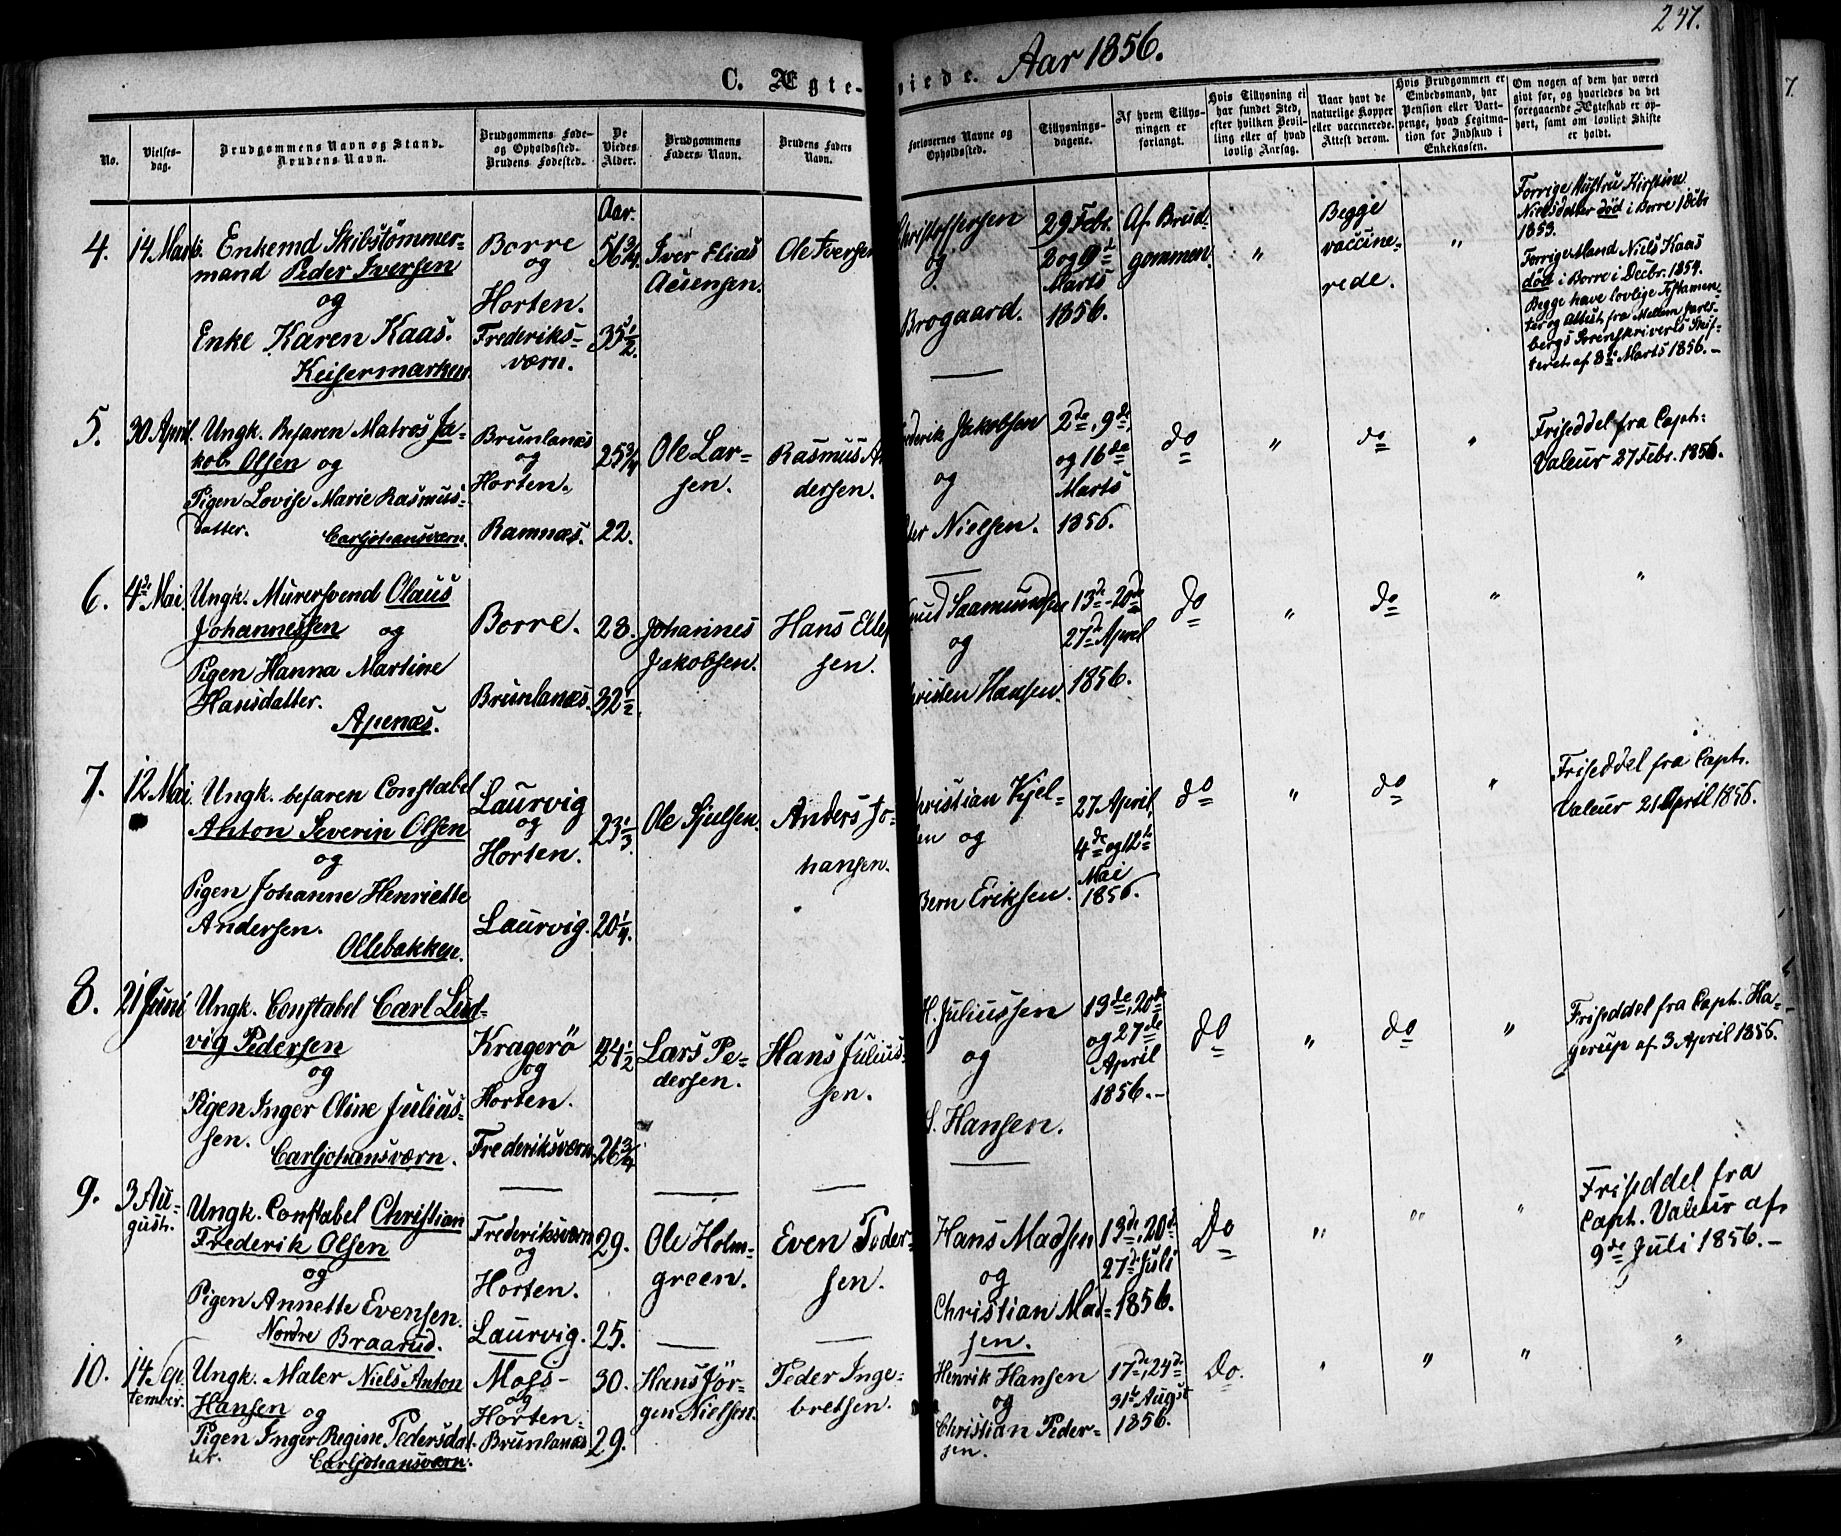 247.
C. Ægte-viede. Aar 1856.
No.
Vielses-
dag.
Brudgommens Navn og Stand.
Brudens Navn.
Brudgommens Føde-
og Opholdssted.
Brudens Fødested.
De
Viedes
Alder.
Brudgommens
Faders Navn.
Brudens Faders
Navn.
Forlovernes Navne og
Opholdssted.
Tillysnings-
dagene.
Af hvem Tillys-
ningen er
forlangt.
Hvis Tillysning ei
har fundet Sted,
efter hvilken Bevil-
ling eller af hvad
lovlig Aarsag.
Naar havt de
naturlige Kopper
eller vaccinerede.
Attest derom.
Hvis Brudgommen er
Embedsmand, har
Pension eller Vart-
penge, hvad Legitima-
tion for Indskud i
Enkekassen.
Om nogen af dem har været
gift før, og hvorledes da det
foregaaende Ægteskab er op-
hørt, samt om lovligt Skifte
er holdt.
Aar.
4. 14 Marts. Enkemd Skibstömmer-
mand Peder Iversen
og
Enke Karen Kaas.
Keisermarken.
Borre
og
Horten.
Frederiks-
værn.
56 3/4
35 1/2.
Iver Elias
Aesensen.
Ole Iversen
Christoffersen
og
Brogaard.
29 Febr.
2 og 9de
Marts
1856.
Af Brud-
gommen.
"
Begge
vaccine-
rede.
"
Forrige Hustru Kirstine
Nielsdatter död i Borre
1853.
Forrige Mand Niels Kaas
död i Borre i Decbr. 1854.
Begge have lovlige Testamen-
ter og Attest fra Mellem Jarls-
bergs Sorenskriveris Skif-
teret af 8de Marts 1856.-
5. 30 April. Ungk. Befaren Matros Ja-
kob Olsen og
Pigen Lovise Marie Rasmus-
datter.
Carljohansværn.
Brunlanæs
og
Horten.
Ramnæs.
25 3/4
22.
Ole Lar-
sen.
Rasmus An
dersen.
Frederik Jakobsen
og
Nielsen.
2de, 9de
og 16de
Marts
1856.
do
"
do
"
Friseddel fra Capt:
Valeur 27 Febr. 1856.
6. 4de Mai. Ungk. Murersvend Olaus
Johannessen og
Pigen Hanna Martine
Hansdatter.
Apenæs.
Borre.
Brunlanæs.
28.
32 1/2
Johannes
Jakobsen.
Hans Ellef
sen.
Knud Saamundsen
og
Christen Hansen.
13de-20de
27de April
1856.
do
"
do
"
"
7. 12 Mai. Ungk. befaren Constabel
Anton Severin Olsen
og
Pigen Johanne Henriette
Andersen.
Ollebakken.
Laurvig
og
Horten.
Laurvig.
23 1/3.
20 1/4.
Ole Sjulsen.
Anders Jo-
hansen.
Christian Kjel-
sen og
Bern Eriksen.
27 April,
4de og 12te
Mai
1856.
do
"
do
"
Friseddel fra Capt.
Valeur 21 April 1856.
8. 21 Juni Ungk. Constabel Carl Lud-
vig Pedersen
og
Pigen Inger Oline Julius-
sen.
Carljohansværn.
Kragerö
og
Horten.
Frederiksværn.
24 1/2
26 3/4
Lars Pe-
dersen.
Hans Julius-
sen.
H. Juliussen
og
S. Hansen.
13de, 20de
og 27de
April
1856.-
do
"
do
"
Friseddel fra Capt. Ha-
gerup af 3 April 1856.
9. 3 Au-
gust. Ungk. Constabel Christian
Frederik Olsen
og
Pigen Annette Evensen.
Nordre Braarud.
Frederiksværn
og
Horten.
Laurvig.
29.
25.
Ole Holm-
green.
Even Peder-
sen.
Hans Madsen
og
Christian Mad-
sen.
13de, 20de
27de Juli
1856.
Do
"
"
"
Friseddel fra
Capt. Valeur af
9de Juli 1856.-
10. 14 Sep-
tember. Ungk. Maler Niels Anton
Hansen og
Pigen Inger Regine Pedersdat-
ter.
Carljohansværn.
Moss-
og
Horten-
Brunlanæs
30.
29.
Hans Jör-
gen Nielsen.
Peder Inge-
bretsen.
Henrik Hansen
og
Christian Peder-
sen.
17de, 24de
31te August
1856.
Do.
"
"
"
"